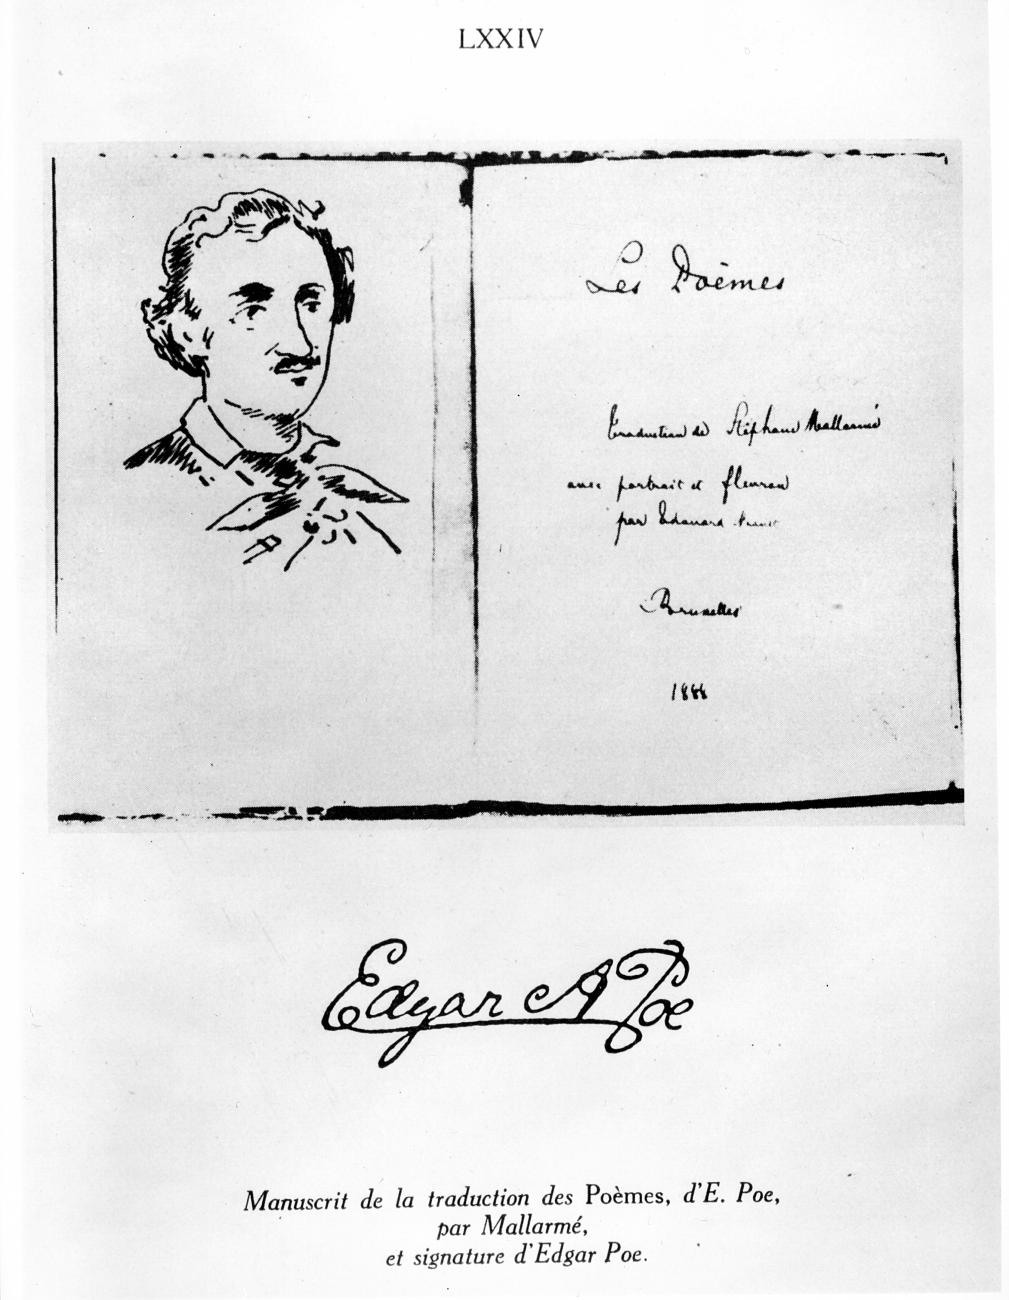 LXXIV
Les Poèmes
traduction de Stéphane Mallarmé
avec portrait et fleuron
par Edouard
Bruxelles
1888
Edgar A Poe
Manuscrit de la traduction des Poèmes, d'E. Poe,
par Mallarmé,
et signature d'Edgar Poe.